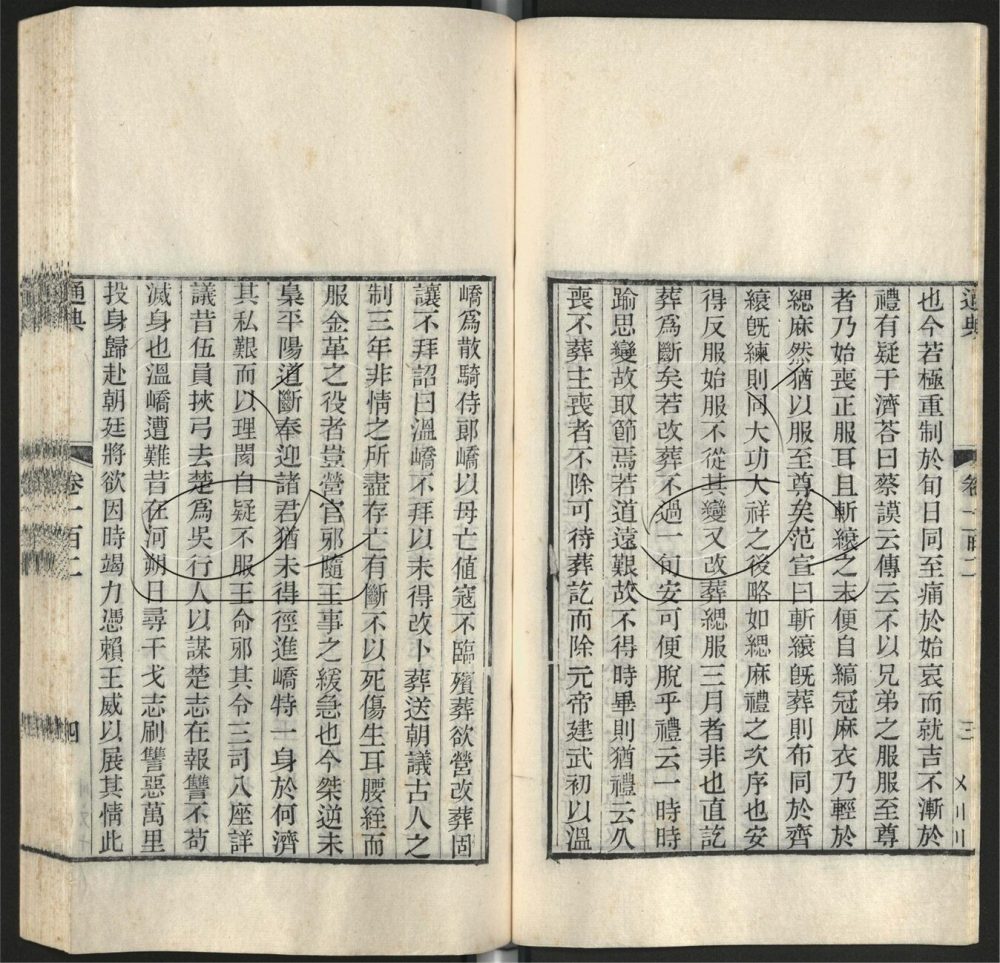 通典
卷一百二
三
〤〣〣
也今若極重制於旬日同至痛於始哀而就吉不漸於
禮有疑于濟荅曰蔡謨云傳云不以兄弟之服服至尊
者乃始喪正服耳且斬縗之末便自縞冠麻衣乃輕於
緦麻然猶以服至尊矣范宣曰斬縗旣葬則布同於齊
縗旣練則同大功大祥之後略如緦麻禮之次序也安
得反服始服不從其變又改葬緦服三月者非也直訖
葬爲斷矣若改葬不過一旬安可便脫乎禮云一時時
踰思變故取節焉若道遠艱故不得時畢則猶禮云久
喪不葬主喪者不除可待葬訖而除元帝建武初以溫
嶠爲散騎侍郎嶠以母亡値寇不臨殯葬欲營改葬固
讓不拜詔曰溫嶠不拜以未得改卜葬送朝議古人之
制三年非情之所盡存亡有斷不以死傷生耳腰絰而
服金革之役者豈營官邪隨王事之緩急也今桀逆未
梟平陽道斷奉迎諸君猶未得徑進嶠特一身於何濟
其私艱而以理閡自疑不服王命邪其令三司八座詳
議昔伍員挾弓去楚爲吳行人以謀楚志在報讐不苟
滅身也溫嶠遭難昔在河朔日尋干戈志刷讐惡萬里
投身歸赴朝廷將欲因時竭力憑賴王威以展其情此
通典
卷一百二
四